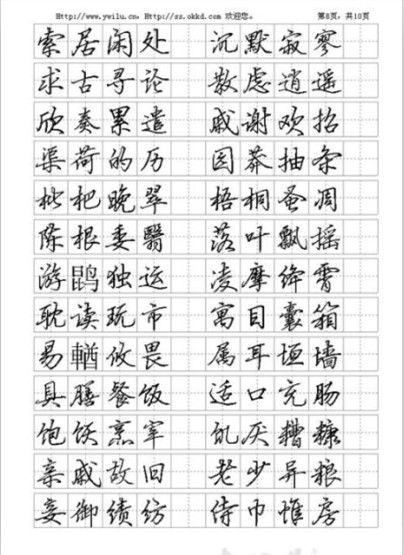 Http://www.ywilu.cn, Http://ss.okkd.com 欢迎您。 第8页，共10页
索居闲处 沉默寂寥
求古寻论 散虑逍遥
欣奏累遣 戚谢欢招
渠荷的历 园莽抽条
枇杷晚翠 梧桐蚤凋
陈根委翳 落叶飘摇
游鹍独运 凌摩绛霄
耽读玩市 寓目囊箱
易輶攸畏 属耳垣墙
具膳餐饭 适口充肠
饱饫烹宰 饥厌糟糠
亲戚故旧 老少异粮
妾御绩纺 侍巾帷房